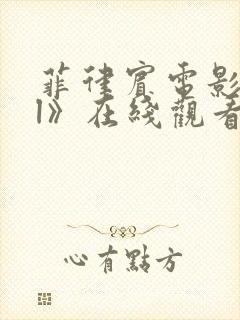 菲律宾電影
1》在綫觀看
心有點方